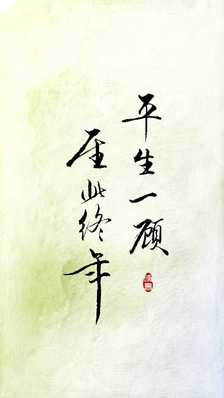 平生一顾
至此终年